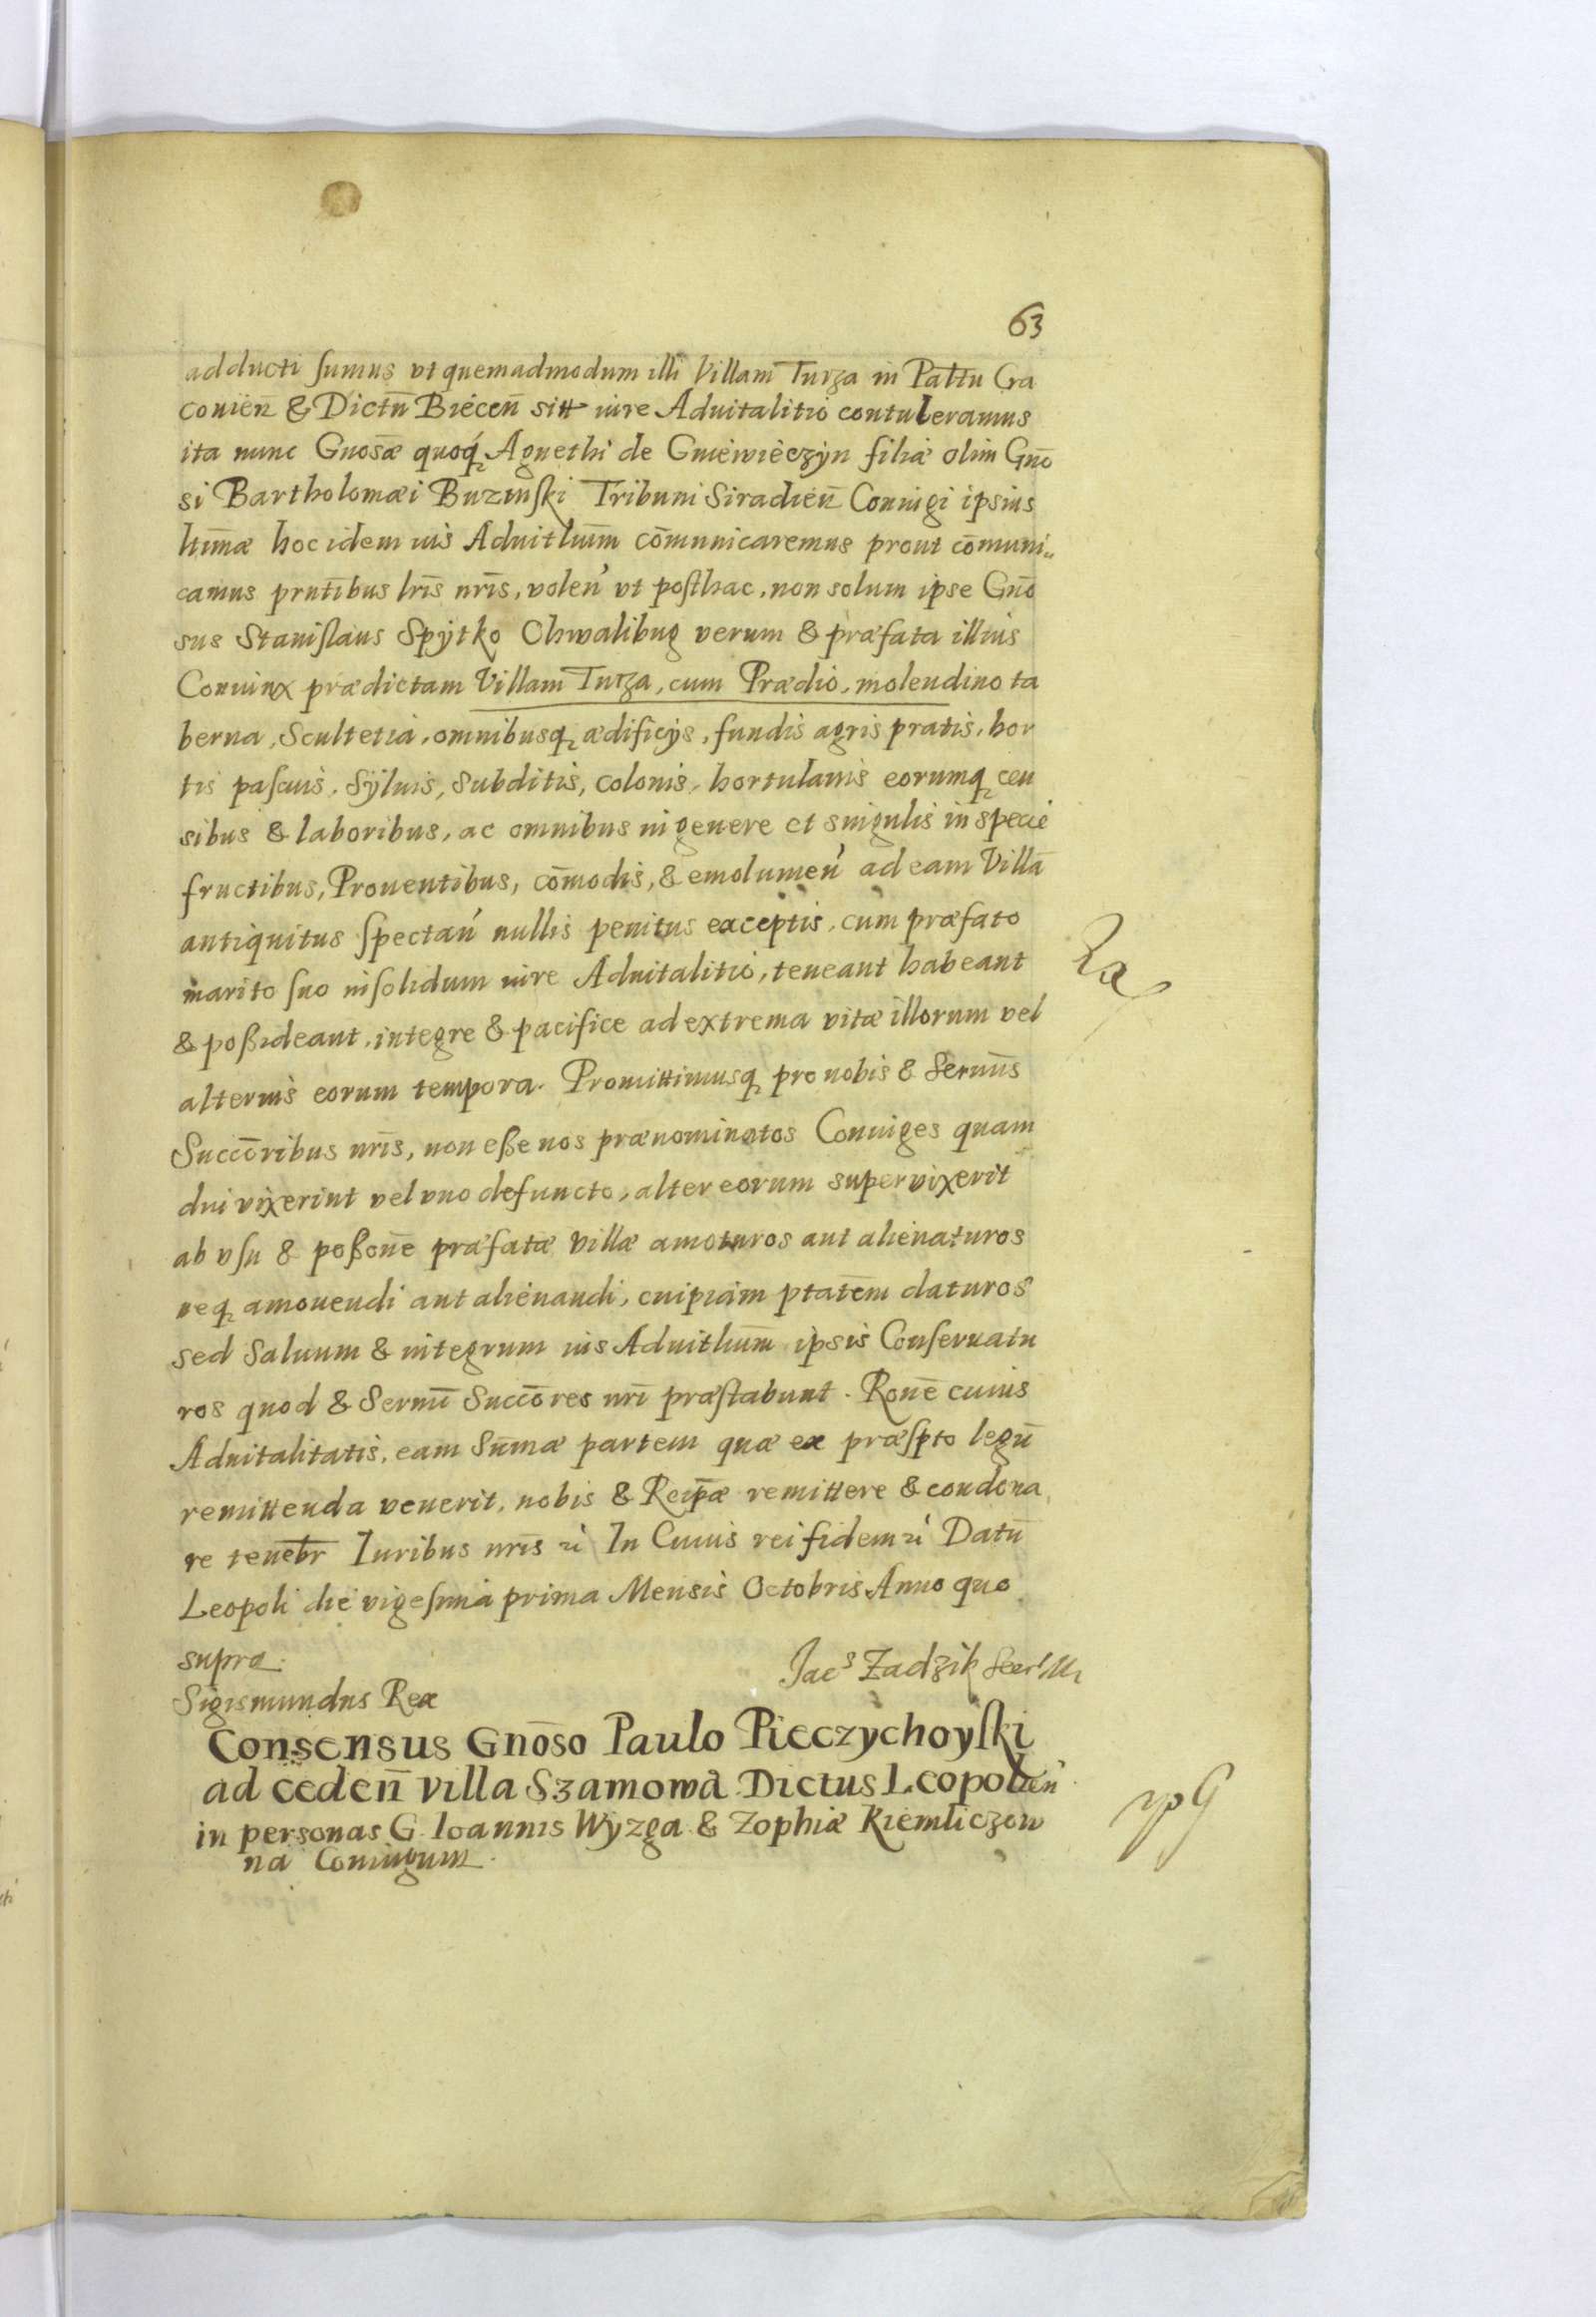 63
adducti sumus vt quemadmodum illi Villam Turza in Pallu Cra
couien̄ & Dictū Biecen̄ sitt iure Aduitalitio contuleramus
ita nunc Gnosæ quoq́ Agnethi de Gniewięczyn filiæ olim Gnō
si Bartholomæi Buzinski Tribuni Siradień Coniugi ipsius
ltimæ hoc idem ius Aduitliūm com̄unicaremus prout com̄uni„
camus prntibus lrīs nrīs, volen̄ vt posthac, non solum ipse Gnō
sus Stanislaus Spÿtko Chwalibug verum & præfata illius
Coniunx prædictam Villam Turza, cum Prædio, molendino ta
berna, Scultetia, omnibusq ædificÿs, fundis agris pratis, hor
tis pascuis, Sÿluis, Subditis, colonis, hortulanis eorumq cen
sibus & laboribus, ac omnibus in genere et singulis in specie
fructibus, Prouentibus, com̄odis, & emolumen̄ ad eam Villā
antiquitus spectan̄ nullis penitus exceptis, cum præfato
marito suo insolidum iure Aduitalitio, teneant habeant
& poßideant, integre & pacifice ad extrema vitæ illorum vel
alterius eorum tempora. Promittimusq pro nobis & Sernīs
Succōribus nrīs, non eße nos prænominatos Coniuges quam
diu vixerint vel vno defuncto, alter eorum supervixerit
ab vsu & poßonē præfatæ villæ amoturos aut alienaturos
neq amouendi aut alienandi, cuipiam ptatēm daturos
sed Saluum & integrum ius Aduitliūm ipsis Conseruatu
ros quod & Sernī Succōres nrī præstabunt. Ronē cuius
Aduitalitatis, eam Sum̄æ partem quæ ex præspto legū
remittenda venerit, nobis & Reip̄æ remittere & condona
re tenebr Iuribus nrīs ꝛ In Cuius rei fidem ꝛ Datū
Leopoli die vigesima prima Mensis Octobris Anno quo
supra.
Jacˢ Zadzik Secr
Sigismundus Rex
Consensus Gnōso Paulo Pieczychoyski
ad ceden̄ villa Szamowa Dictus Leopolien̄
in personas G. Ioannis Wyzga & Zophiæ Kiemliczow
na Coniugum.